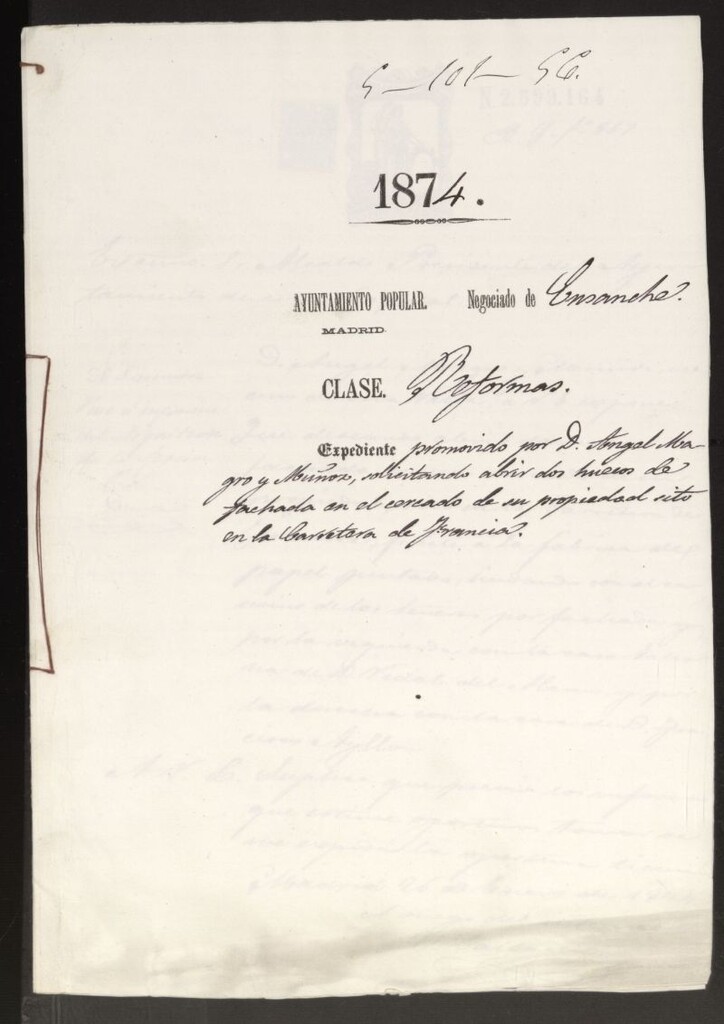 5-101-56.
1874.
AYUNTAMIENTO POPULAR. Negociado de Ensanche.
MADRID
CLASE. Reformas.
Expediente promovido por D. Angel Ma-
gro y Muñoz, solicitando abrir dos huecos de
fachada en el cercado de su propiedad sito
en la Carretera de Francia.